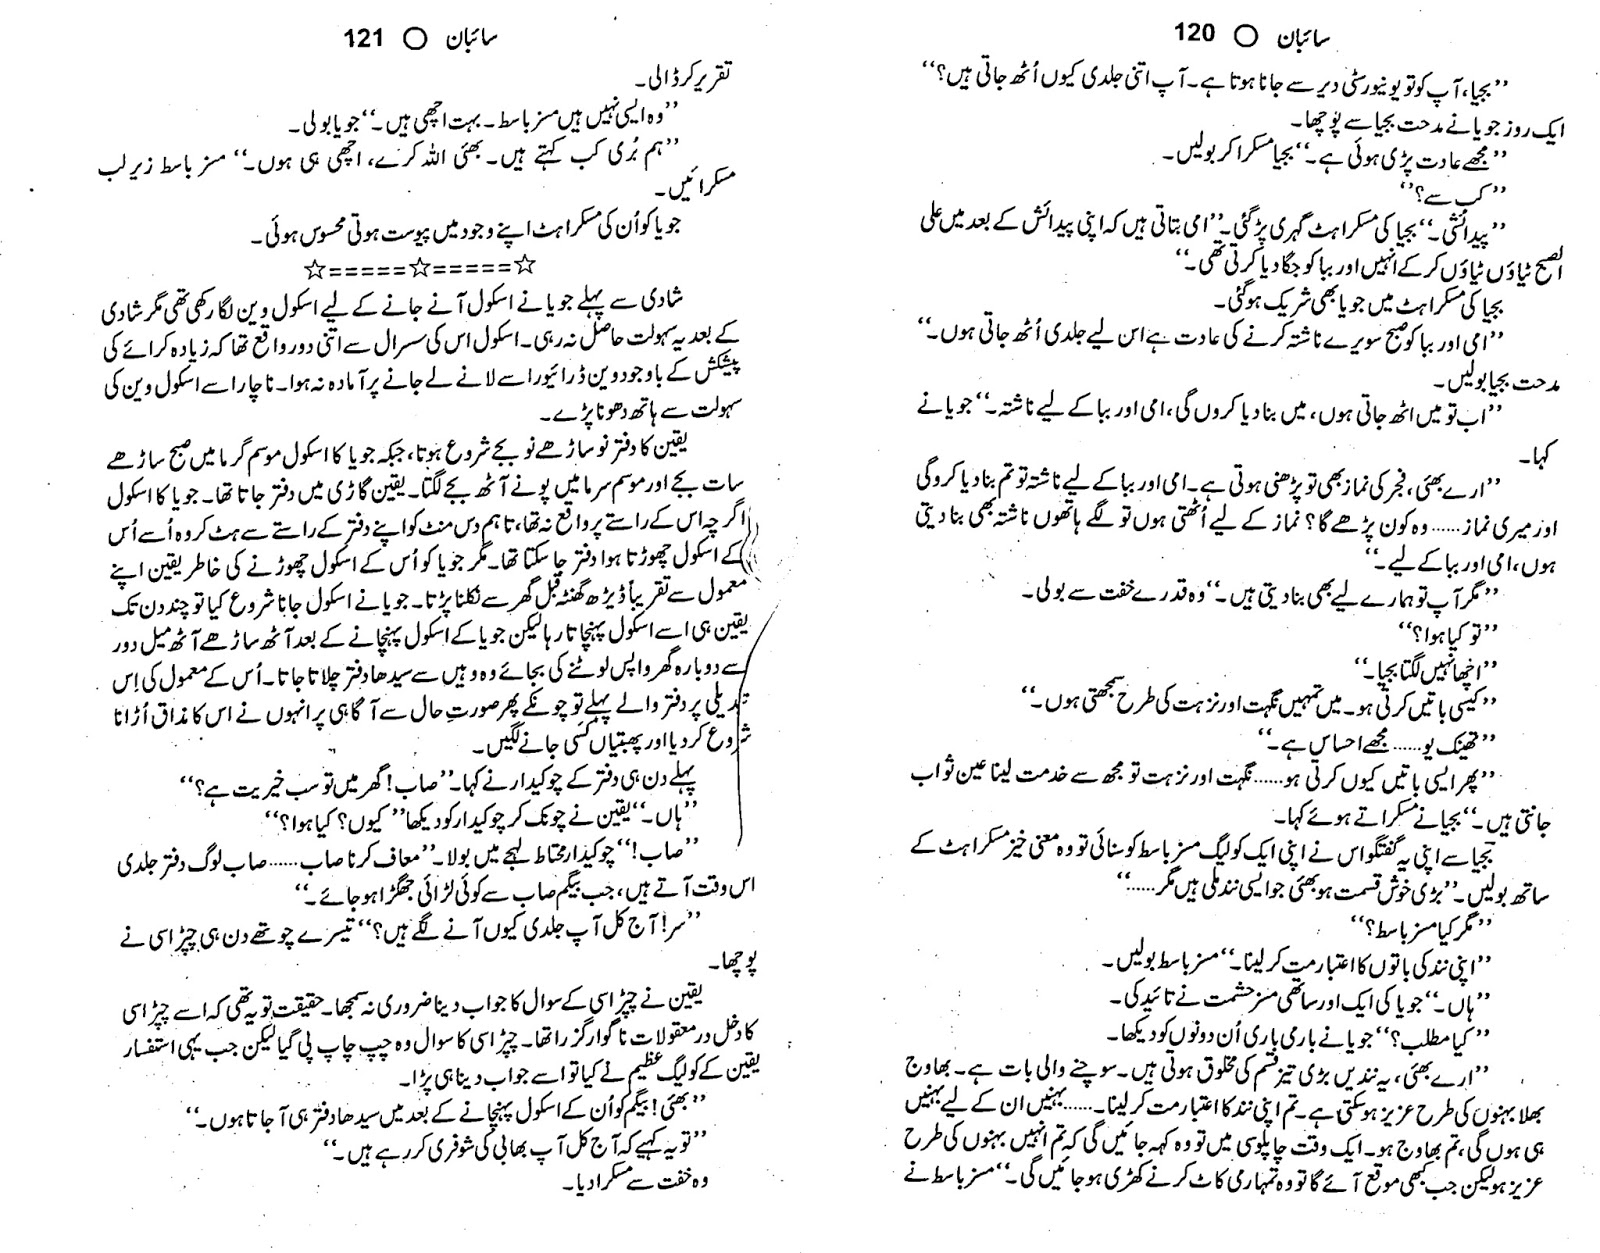 سائبان ○ 120
’’بجیا، آپ کو تو یونیورسٹی دیر سے جانا ہوتا ہے۔ آپ اتنی جلدی کیوں اُٹھ جاتی ہیں؟‘‘
ایک روز جویا نے مدحت بجیا سے پوچھا۔
’’مجھے عادت پڑی ہوئی ہے۔‘‘ بجیا مسکرا کر بولیں۔
’’کب سے؟‘‘
’’پیدائشی۔‘‘ بجیا کی مسکراہٹ گہری پڑ گئی۔ ’’امی بتاتی ہیں کہ اپنی پیدائش کے بعد میں علی
الصبح ٹیاؤں ٹیاؤں کر کے انہیں اور ببا کو جگا دیا کرتی تھی۔‘‘
بجیا کی مسکراہٹ میں جویا بھی شریک ہو گئی۔
’’امی اور ببا کو صبح سویرے ناشتہ کرنے کی عادت ہے اس لیے جلدی اُٹھ جاتی ہوں۔‘‘
مدحت بجیا بولیں۔
’’اب تو میں اٹھ جاتی ہوں، میں بنا دیا کروں گی، امی اور ببا کے لیے ناشتہ۔‘‘ جویا نے
کہا۔
’’ارے بھئی، فجر کی نماز بھی تو پڑھنی ہوتی ہے۔ امی اور ببا کے لیے ناشتہ تو تم بنا دیا کرو گی
اور میری نماز...... وہ کون پڑھے گا؟ نماز کے لیے اُٹھتی ہوں تو لگے ہاتھوں ناشتہ بھی بنا دیتی
ہوں، امی اور ببا کے لیے۔‘‘
’’مگر آپ تو ہمارے لیے بھی بنا دیتی ہیں۔‘‘ وہ قدرے خفت سے بولی۔
’’تو کیا ہوا؟‘‘
’’اچھا نہیں لگتا بجیا۔‘‘
’’کیسی باتیں کرتی ہو۔ میں تمہیں نگہت اور نزہت کی طرح سمجھتی ہوں۔‘‘
’’تھینک یو...... مجھے احساس ہے۔‘‘
’’پھر ایسی باتیں کیوں کرتی ہو...... نگہت اور نزہت تو مجھ سے خدمت لینا عین ثواب
جانتی ہیں۔‘‘ بجیا نے مسکراتے ہوئے کہا۔
بجیا سے اپنی یہ گفتگو اس نے اپنی ایک کولیگ مسز باسط کو سنائی تو وہ معنی خیز مسکراہٹ کے
ساتھ بولیں۔ ’’بڑی خوش قسمت ہو بھئی جو ایسی نند ملی ہیں مگر......‘‘
’’مگر کیا مسز باسط؟‘‘
’’اپنی نند کی باتوں کا اعتبار مت کر لینا۔‘‘ مسز باسط بولیں۔
’’ہاں۔‘‘ جویا کی ایک اور ساتھی مسز حشمت نے تائید کی۔
’’کیا مطلب؟‘‘ جویا نے باری باری اُن دونوں کو دیکھا۔
’’ارے بھئی، یہ نندیں بڑی تیز قسم کی مخلوق ہوتی ہیں۔ سوچنے والی بات ہے۔ بھاوج
بھلا بہنوں کی طرح عزیز ہو سکتی ہے۔ تم اپنی نند کا اعتبار مت کر لینا۔...... بہنیں ان کے لیے بہنیں
ہی ہوں گی، تم بھاوج ہو۔ ایک وقت چاپلوسی میں تو وہ کہہ جائیں گی کہ تم انہیں بہنوں کی طرح
عزیز ہو لیکن جب کبھی موقع آئے گا تو وہ تمہاری کاٹ کرنے کھڑی ہو جائیں گی۔‘‘ مسز باسط نے
سائبان ○ 121
تقریر کر ڈالی۔
’’وہ ایسی نہیں ہیں مسز باسط۔ بہت اچھی ہیں۔‘‘ جویا بولی۔
’’ہم بُری کب کہتے ہیں۔ بھئی اللہ کرے، اچھی ہی ہوں۔‘‘ مسز باسط زیر لب
مسکرائیں۔
جویا کو اُن کی مسکراہٹ اپنے وجود میں پیوست ہوتی محسوس ہوئی۔
☆=====☆=====☆
شادی سے پہلے جویا نے اسکول آنے جانے کے لیے اسکول وین لگا رکھی تھی مگر شادی
کے بعد یہ سہولت حاصل نہ رہی۔ اسکول اس کی سسرال سے اتنی دور واقع تھا کہ زیادہ کرائے کی
پیشکش کے باوجود وین ڈرائیور اسے لانے لے جانے پر آمادہ نہ ہوا۔ ناچار اسے اسکول وین کی
سہولت سے ہاتھ دھونا پڑے۔
یقین کا دفتر نو ساڑھے نو بجے شروع ہوتا، جبکہ جویا کا اسکول موسم گرما میں صبح ساڑھے
سات بجے اور موسم سرما میں پونے آٹھ بجے لگتا۔ یقین گاڑی میں دفتر جاتا تھا۔ جویا کا اسکول
اگرچہ اس کے راستے پر واقع نہ تھا، تاہم دس منٹ کو اپنے دفتر کے راستے سے ہٹ کر وہ اُسے اُس
کے اسکول چھوڑتا ہوا دفتر جا سکتا تھا۔ مگر جویا کو اُس کے اسکول چھوڑنے کی خاطر یقین اپنے
معمول سے تقریباً ڈیڑھ گھنٹہ قبل گھر سے نکلنا پڑتا۔ جویا نے اسکول جانا شروع کیا تو چند دن تک
یقین ہی اسے اسکول پہنچاتا رہا لیکن جویا کے اسکول پہنچانے کے بعد آٹھ ساڑھے آٹھ میل دور
سے دوبارہ گھر واپس لوٹنے کی بجائے وہ وہیں سے سیدھا دفتر چلا تا جاتا۔ اُس کے معمول کی اِس
تبدیلی پر دفتر والے پہلے تو چونکے پھر صورتِ حال سے آگاہی پر انہوں نے اس کا مذاق اُڑانا
شروع کر دیا اور پھبتیاں کسی جانے لگیں۔
پہلے دن ہی دفتر کے چوکیدار نے کہا۔ ’’صاب! گھر میں تو سب خیریت ہے؟‘‘
’’ہاں۔‘‘ یقین نے چونک کر چوکیدار کو دیکھا ’’کیوں؟ کیا ہوا؟‘‘
’’صاب!‘‘ چوکیدار محتاط لہجے میں بولا۔ ’’معاف کرنا صاب...... صاب لوگ دفتر جلدی
اس وقت آتے ہیں، جب بیگم صاب سے کوئی لڑائی جھگڑا ہو جائے۔‘‘
’’سر! آج کل آپ جلدی کیوں آنے لگے ہیں؟‘‘ تیسرے چوتھے دن ہی چپڑاسی نے
پوچھا۔
یقین نے چپڑاسی کے سوال کا جواب دینا ضروری نہ سمجھا۔ حقیقت تو یہ تھی کہ اسے چپڑاسی
کا دخل در معقولات ناگوار گزرا تھا۔ چپڑاسی کا سوال وہ چپ چاپ پی گیا لیکن جب یہی استفسار
یقین کے کولیگ عظیم نے کیا تو اسے جواب دینا ہی پڑا۔
’’بھئی! بیگم کو اُن کے اسکول پہنچانے کے بعد میں سیدھا دفتر ہی آ جاتا ہوں۔‘‘
’’تو یہ کہیے کہ آج کل آپ بھابی کی شوفری کر رہے ہیں۔‘‘
وہ خفت سے مسکرا دیا۔